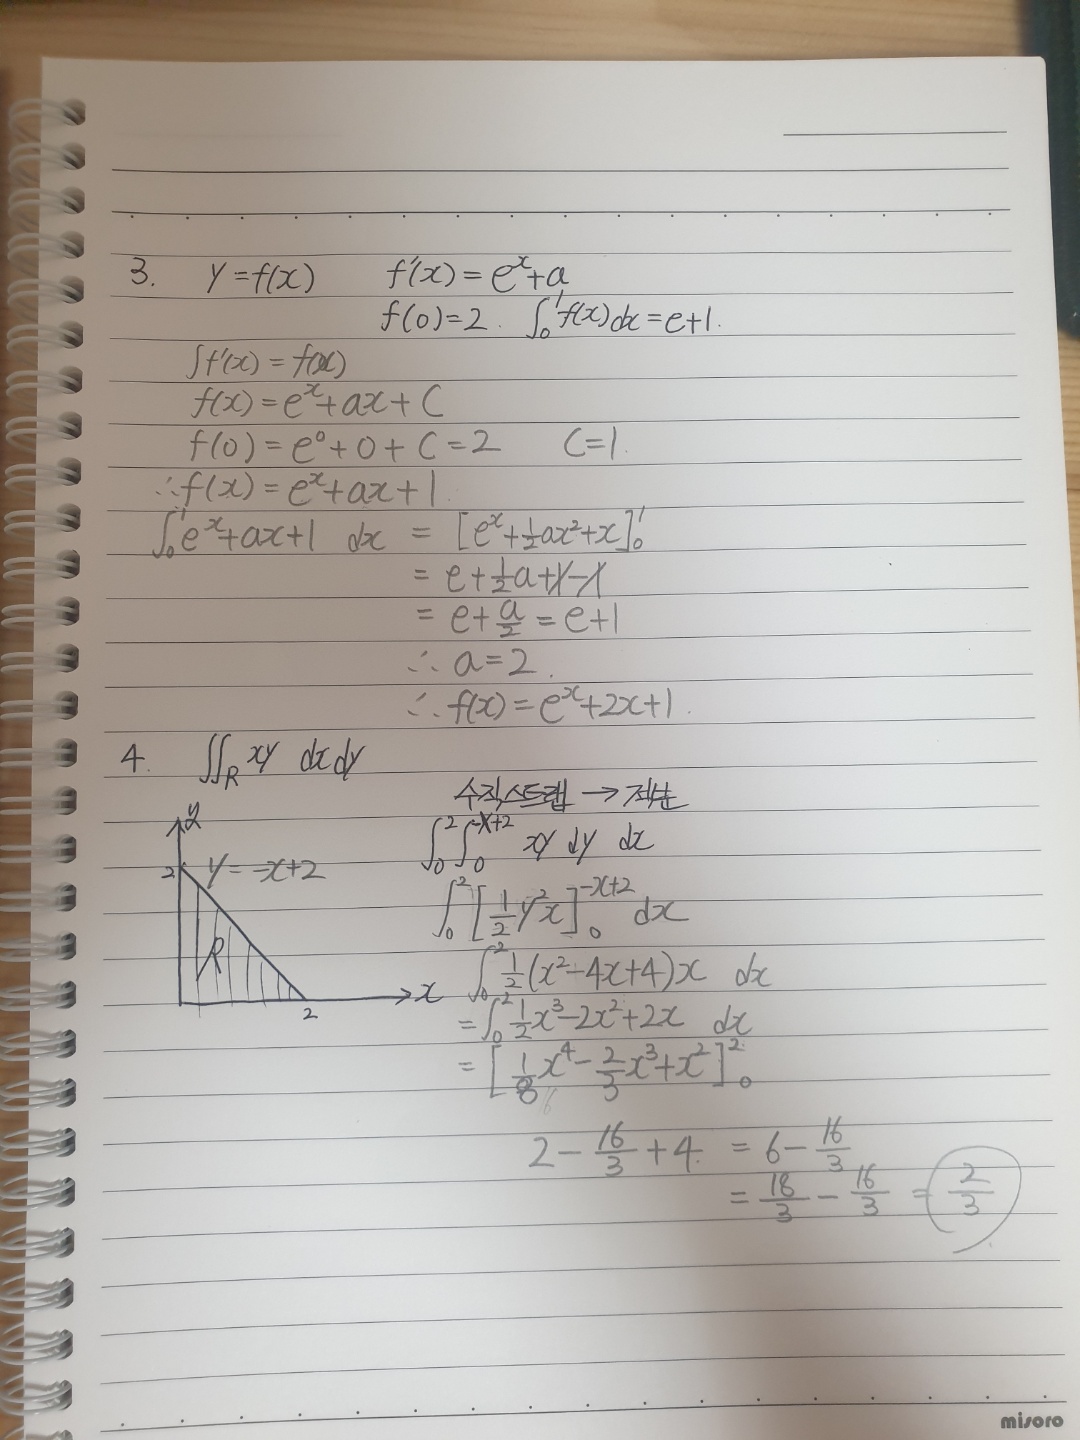 3. y=f(x) f'(x)=e^x+a
f(0)=2. ∫₀¹f(x)dx=e+1.
∫f'(x)=f(x)
f(x)=e^x+ax+C
f(0)=e⁰+0+C=2 C=1.
∴f(x)=e^x+ax+1.
∫₀¹e^x+ax+1 dx = [e^x+½ax²+x]₀¹
= e+½a+1-1
= e+a/2=e+1
∴ a=2.
∴ f(x)=e^x+2x+1.
4. ∬_R xy dxdy
수직스트랩 → 적분
y
2
y=-x+2
R
x
2
∫₀²∫₀^(-x+2) xy dy dx
∫₀²[½y²x]₀^(-x+2) dx
∫₀²½(x²-4x+4)x dx
=∫₀²½x³-2x²+2x dx
= [1/8x⁴-2/3x³+x²]₀²
2-16/3+4. = 6-16/3
= 18/3-16/3=2/3
misoro